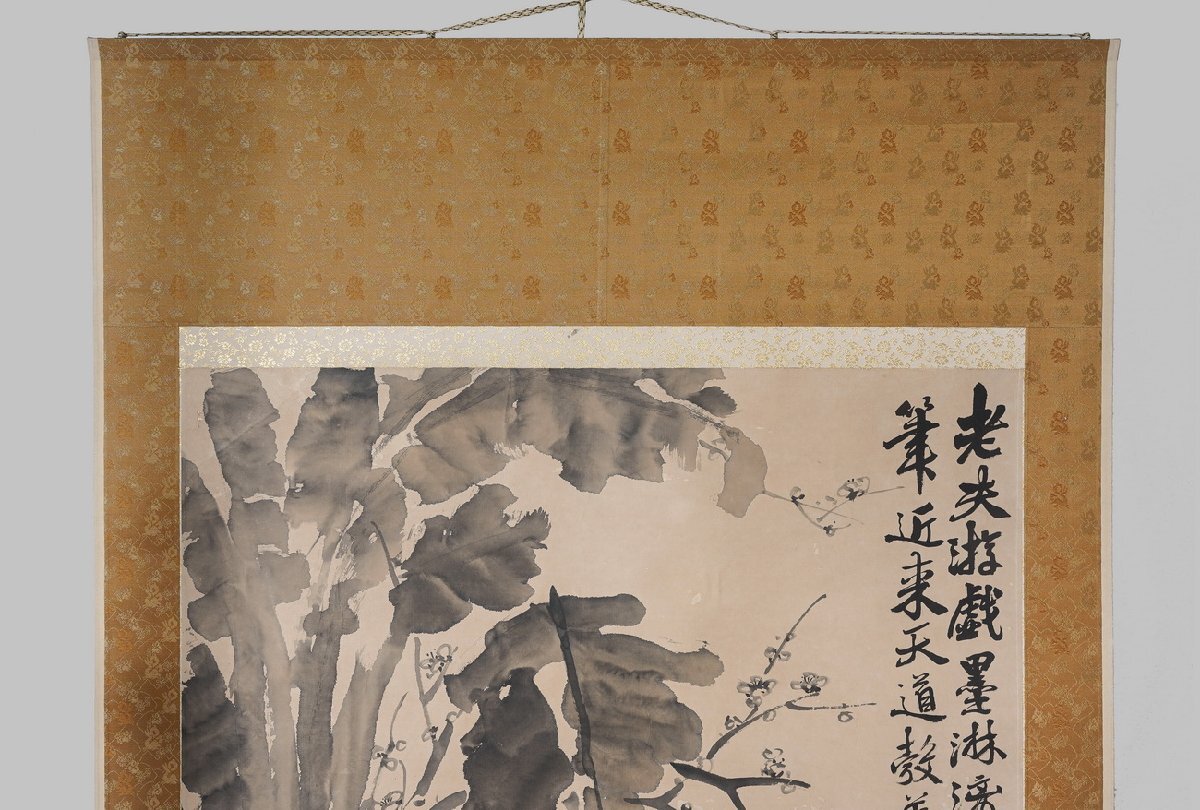 老夫游戲墨淋漓
筆近來天道彀